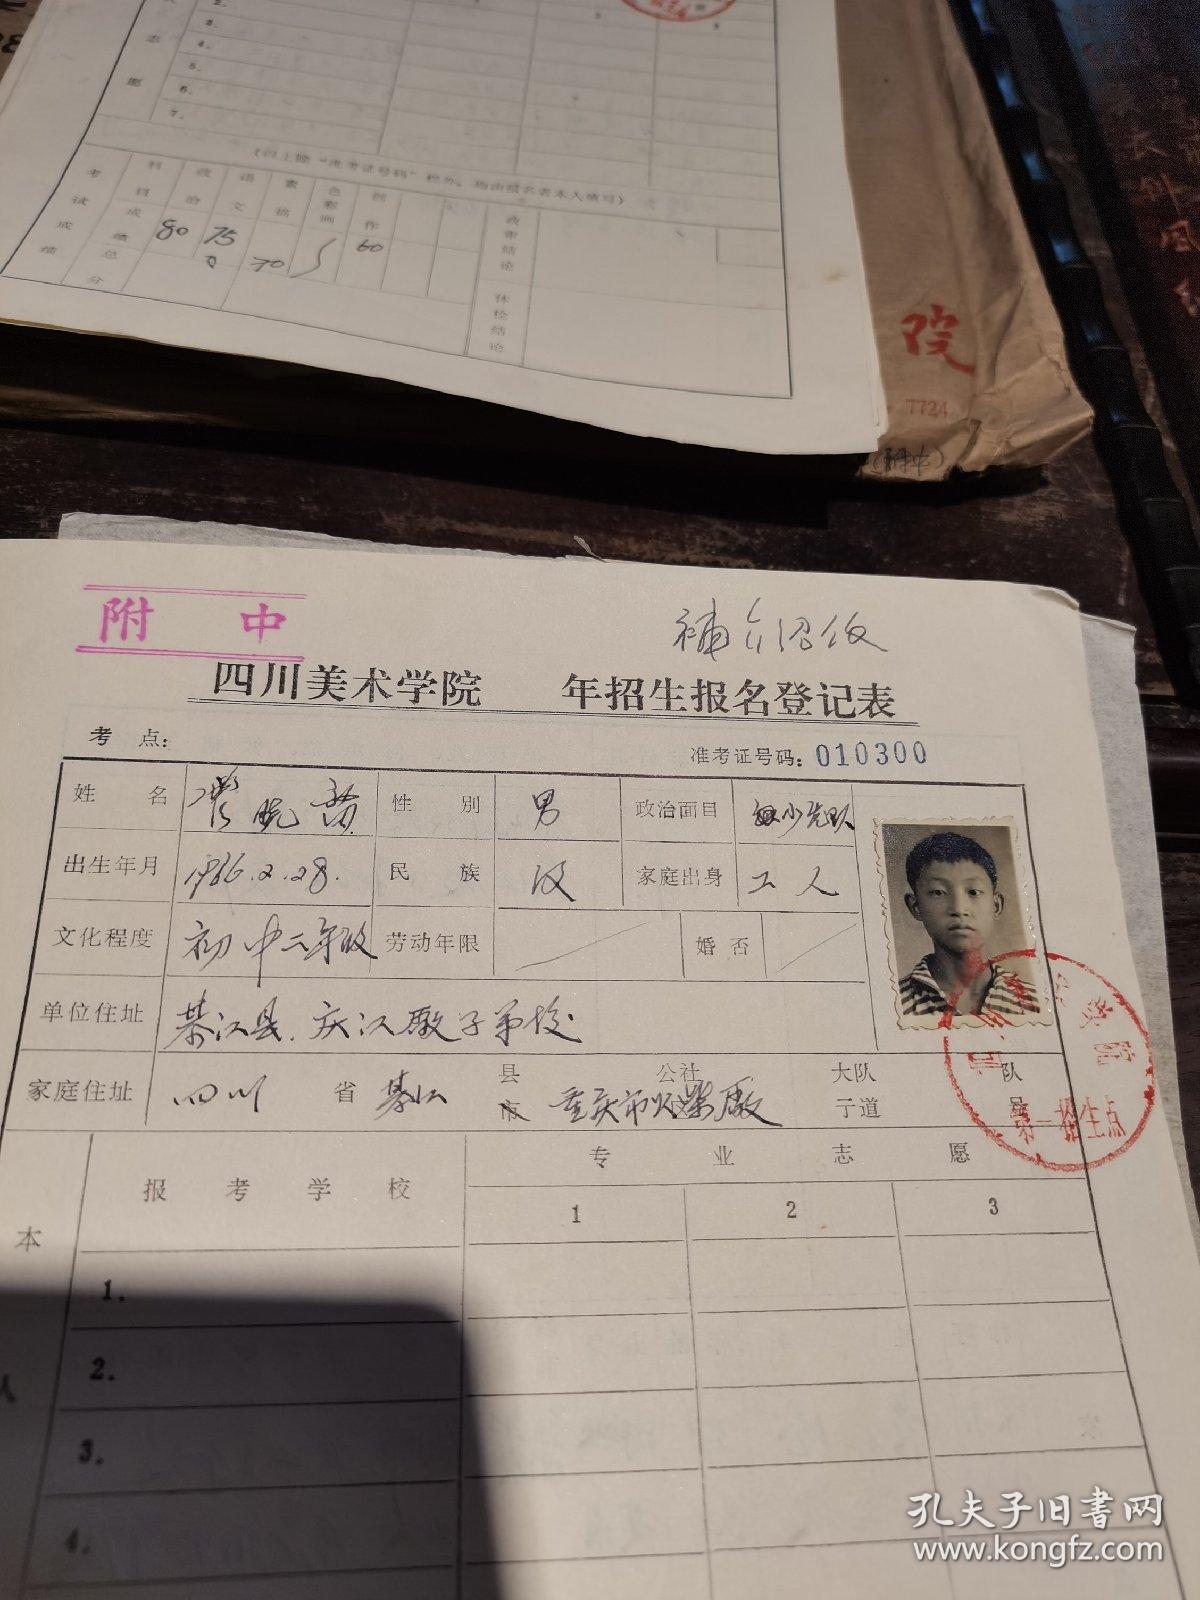 志
愿
2.
3.
4.
5.
6.
7.
(以上除“准考证号码”栏外，均由报名者本人填写)
考试成绩
科目 政治 语文 素描 色彩画 创作
成绩 80 75 70 60
总分
政审结论
体检结论
院
7724
(附中)
附 中
補介绍信
四川美术学院 年招生报名登记表
考 点: 准考证号码: 010300
姓 名 晓 性 别 男 政治面目 少先队
出生年月 1966.2.28. 民 族 汉 家庭出身 工人
文化程度 初中二年级 劳动年限 婚 否
单位住址 綦江县.庆江厰子弟校
家庭住址 四川 省 綦江 县 市 公社 重庆市火柴厰 大队 道 队 号
第一招生点
本
人
报 考 学 校 专 业 志 愿
1 2 3
1.
2.
3.
4.
孔夫子旧书网
www.kongfz.com